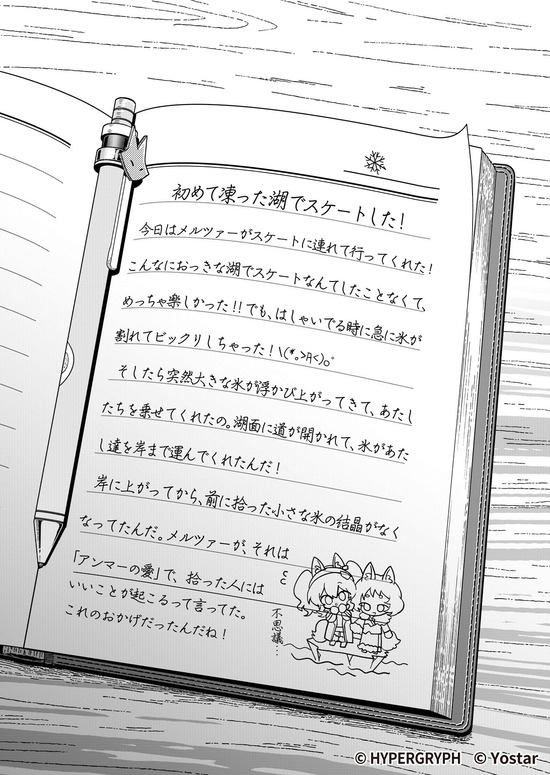 初めて凍った湖でスケートした!
今日はメルツァーがスケートに連れて行ってくれた!
こんなにおっきな湖でスケートなんてしたことなくて、
めっちゃ楽しかった!!でも、はしゃいでる時に急に氷が
割れてビックリしちゃった!\(*｡>Д<)｡゜
そしたら突然大きな氷が浮かび上がってきて、あたし
たちを乗せてくれたの。湖面に道が開かれて、氷があた
し達を岸まで運んでくれたんだ!
岸に上がってから、前に拾った小さな氷の結晶がなく
なってたんだ。メルツァーが、それは
「アンマーの愛」で、拾った人には
いいことが起こるって言ってた。
これのおかげだったんだね!
不思議…
© HYPERGRYPH © Yostar